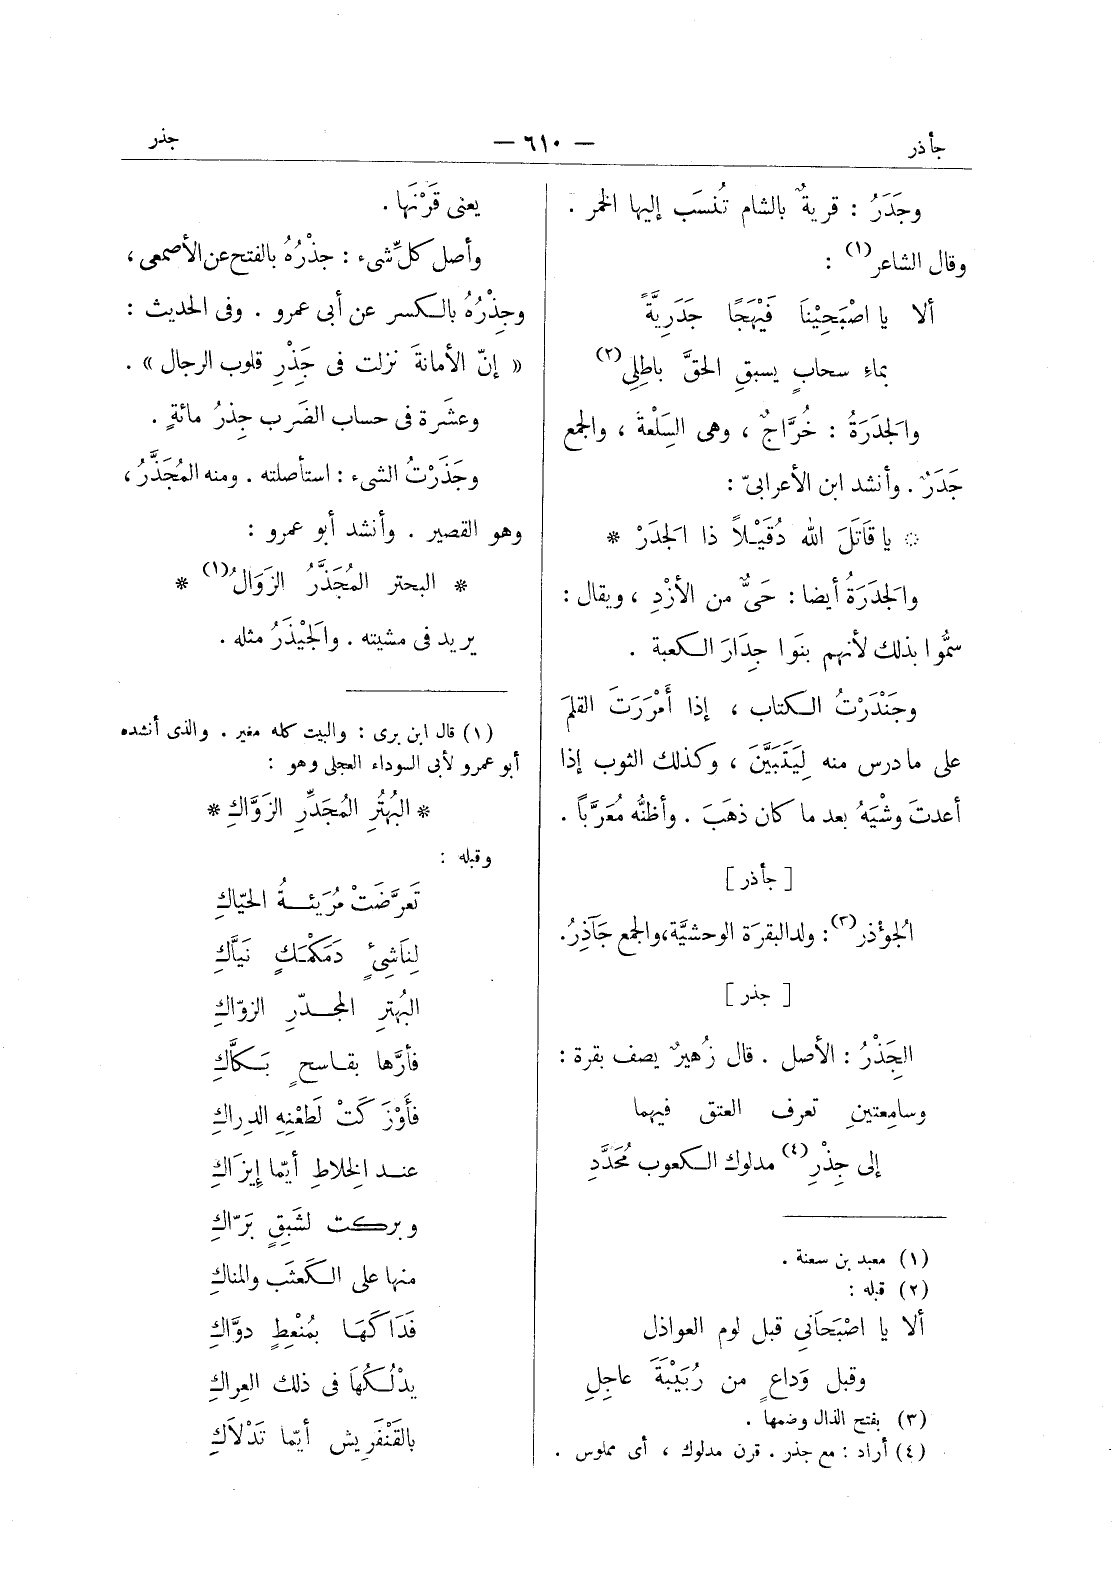 جأذر — ٦١٠ — جذر
وجَدَرُ : قريةٌ بالشام تُنسَب إليها الخمر .
وقال الشاعر(١) :
ألا يا اصْبَحِيْنَا فَيْهَجًا جَدَرِيَّةً
بماءِ سحابٍ يسبقِ الحقَّ باطِلِى(٢)
والجَدَرَةُ : خُرَّاجٌ ، وهى السِلْعةَ ، والجمع
جَدَرٌ . وأنشد ابن الأعرابىّ :
* يا قَاتَلَ الله دُقَيْلاً ذا الجَدَرْ *
والجَدَرَةُ أيضا : حَىٌّ من الأزْدِ ، ويقال :
سمُّوا بذلك لأنهم بنَوا جِدَارَ الكعبة .
وجَنْدَرْتُ الكتاب ، إذا أَمْرَرَتَ القلمَ
على ما درس منه لِيَتَبَيَّنَ ، وكذلك الثوب إذا
أعدتَ وشْيَهُ بعد ما كان ذهَبَ . وأظنُّه مُعَرَّباً .
[ جأذر ]
الجُوْذر(٣) : ولد البقرَة الوحشيَّة، والجمع جَآذِرُ.
[ جذر ]
الجَِذْرُ : الأصل . قال زُهيرٌ يصف بقرة :
وسامِعتينِ تعرف العتق فيهما
إلى جِذْرِ(٤) مدلوك الكعوب مُحَدَّدِ
(١) معبد بن سعنة .
(٢) قبله :
ألا يا اصْبَحَانِى قبل لوم العواذل
وقبل وَداعٍ من رُبَيْبَةَ عاجِلِ
(٣) بفتح الذال وضمها .
(٤) أراد : مع جذر . قرن مدلوك ، أى مملوس .
يعنى قَرْنَها .
وأصل كلِّ شىء : جذْرُهُ بالفتح عن الأصمعى ،
وجِذْرُهُ بالكسر عن أبى عمرو . وفى الحديث :
« إنّ الأمانةَ نزلت فى جَِذْرِ قلوب الرجال » .
وعشَرة فى حساب الضَرب جِذرُ مائةٍ .
وجَذَرْتُ الشىء : استأصلته . ومنه المُجَذَّرُ ،
وهو القصير . وأنشد أبو عمرو :
* البحتر المُجَذَّرُ الزَوَالُ(١) *
يريد فى مشيته . والجَيْذَرُ مثله .
(١) قال ابن برى : والبيت كله مغير . والذى أنشده
أبو عمرو لأبى السوداء العجلى وهو :
* البُهْتُرِ المُجَدِّرِ الزَوَّاكِ *
وقبله :
تَعرَّضَتْ مُرَيئةُ الحيّاكِ
لِنَاشِئٍ دَمَكْمَكٍ نَيَّاكِ
البُهترِ المجدّرِ الزوّاكِ
فأرَّها بقاسحٍ بَكَّاكِ
فَأَوْزَكَتْ لَطَعْنِهِ الدِراكِ
عند الخِلاطِ أيّما إِيزَاكِ
وبركت لشَبِقٍ بَرّاكِ
منها على الكَعثَب والمناكِ
فَدَاكَهَا بمُنْعِظٍ دوَّاكِ
يدْلُكُهَا فى ذلك العِراكِ
بالقَنْفَرِيش أيّما تَدْلاَكِ